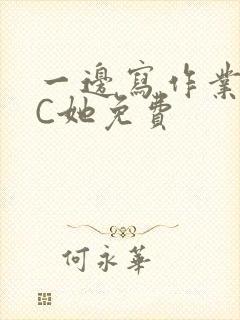 一邊寫作業
C她免費
何永華